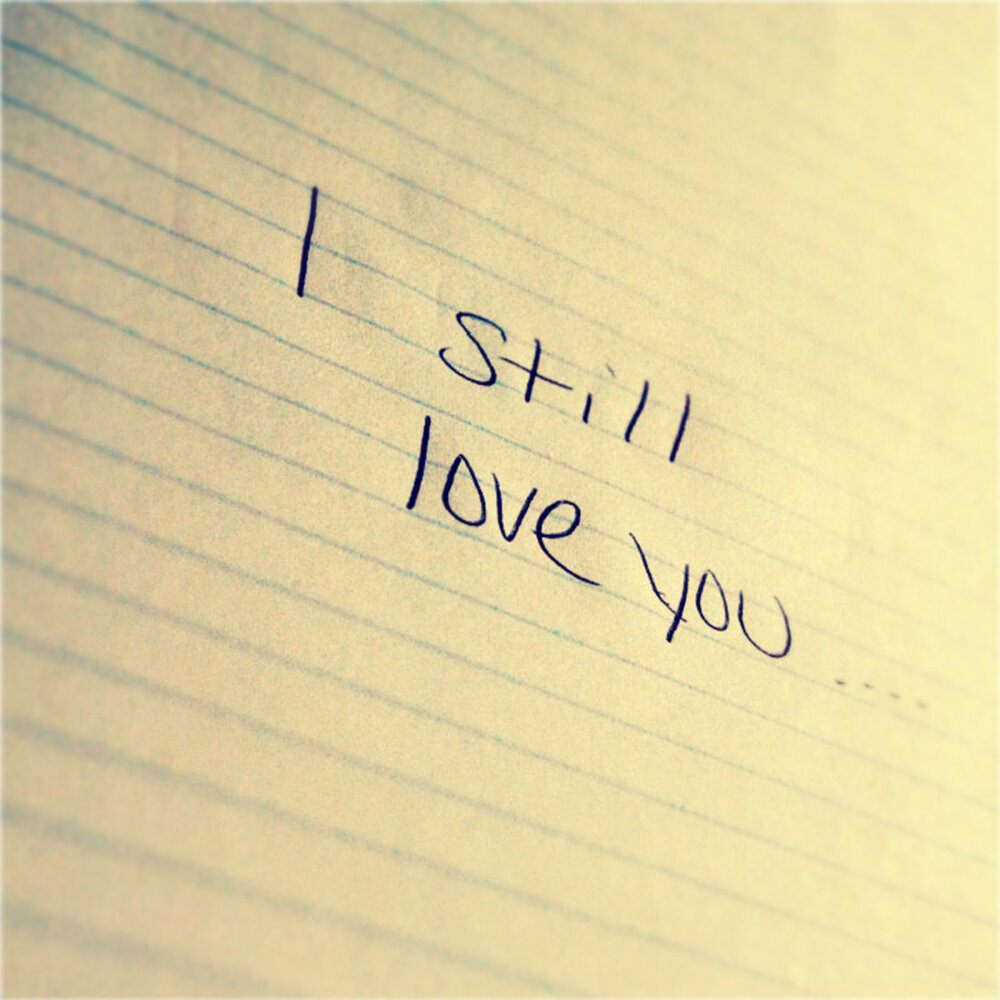 I still
love you ....